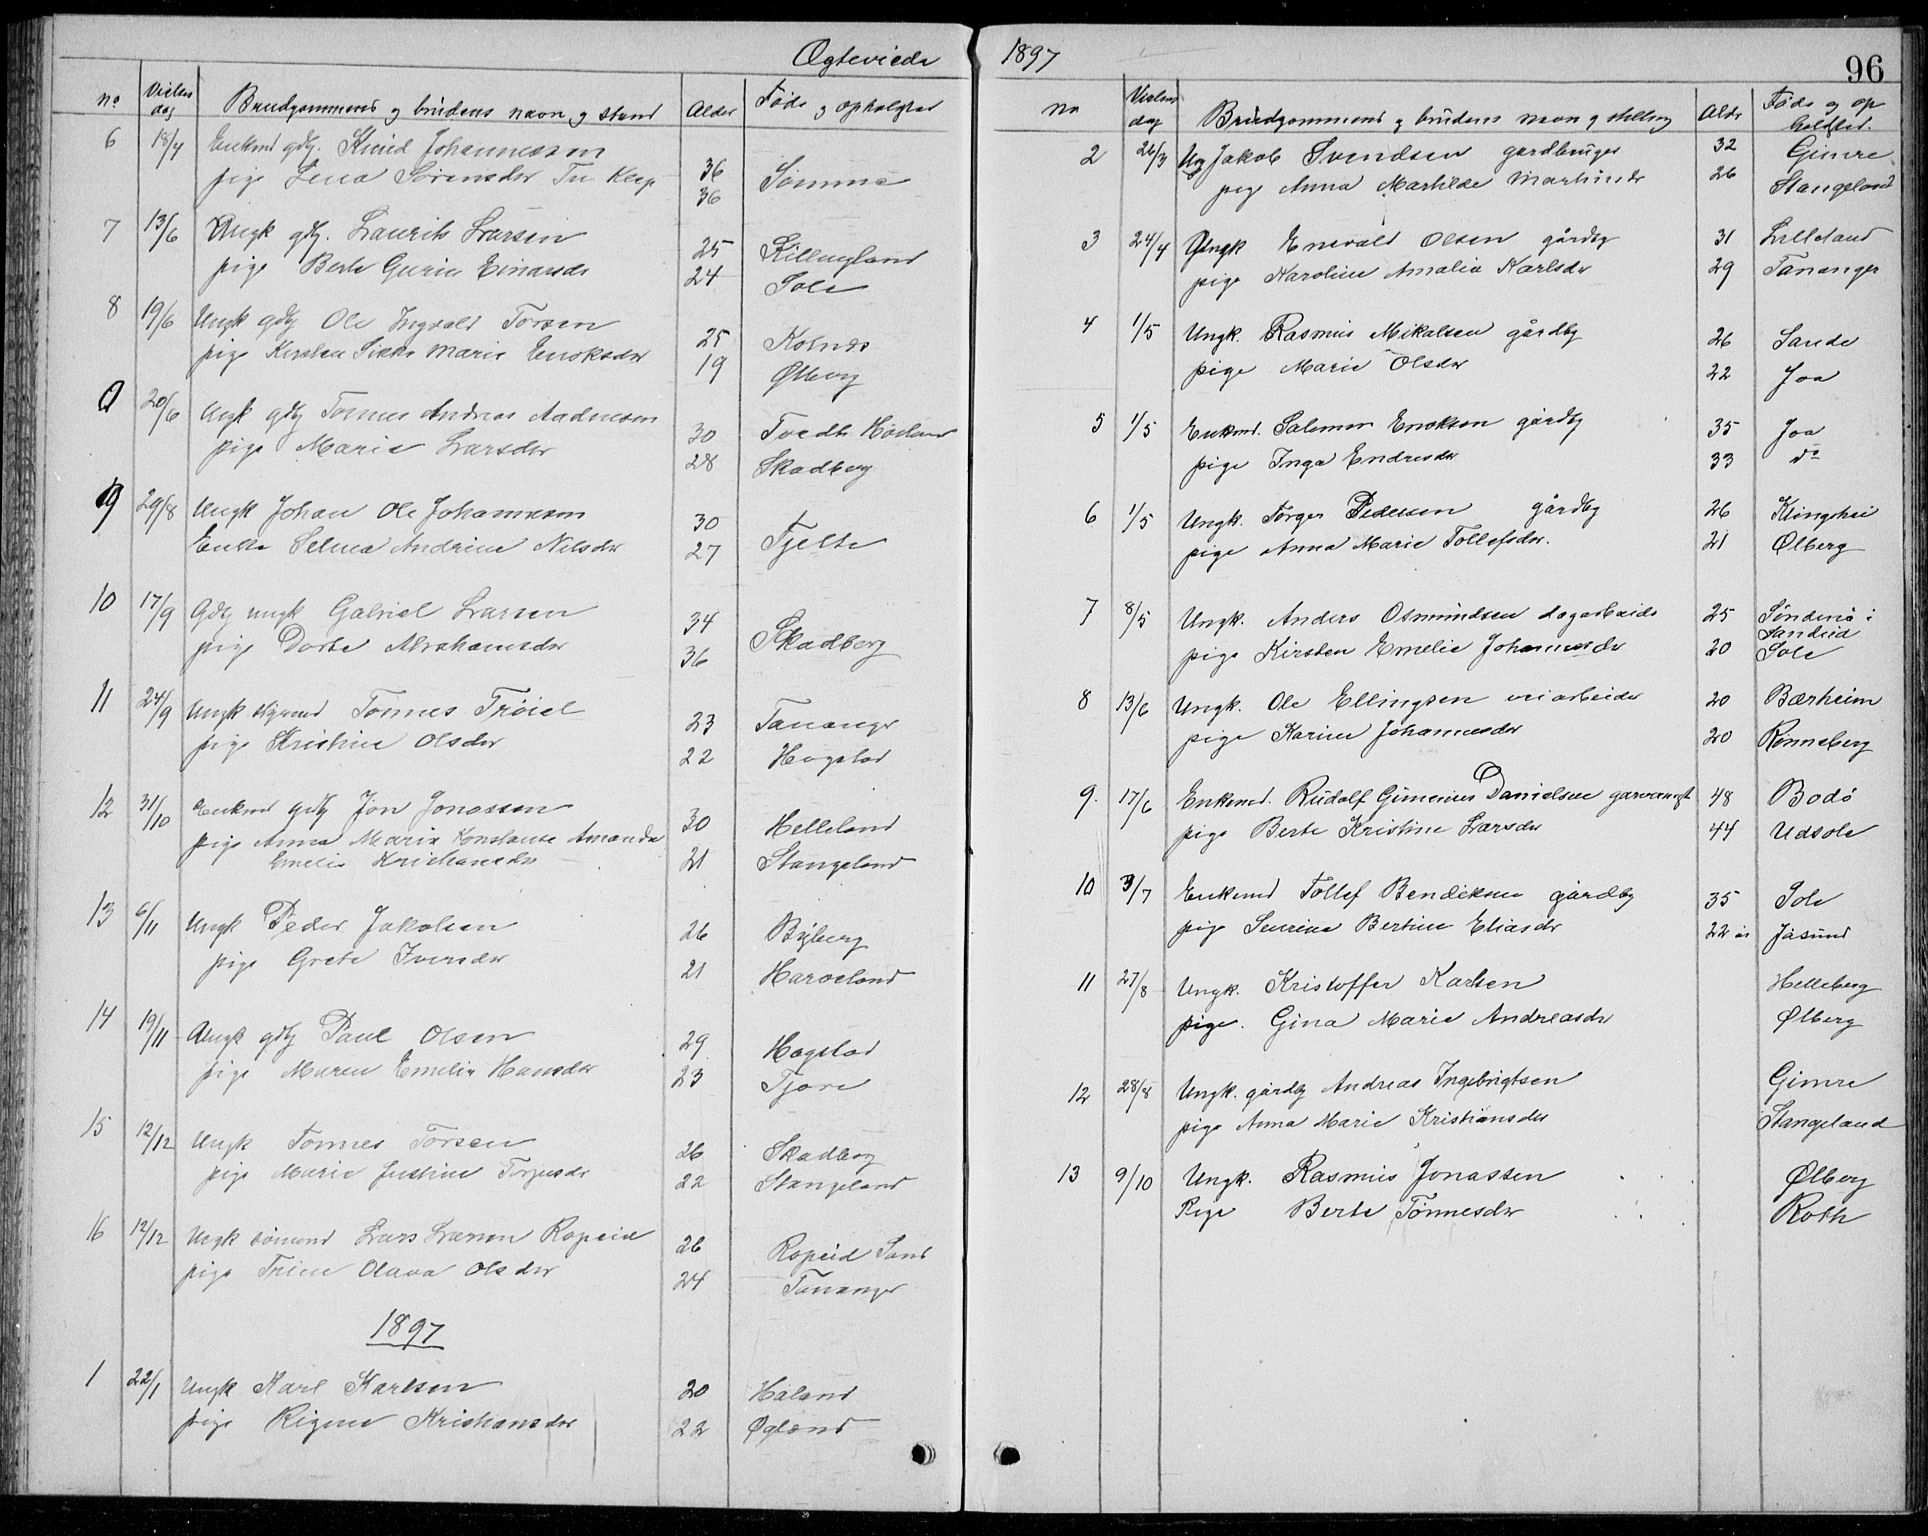 Ægteviede
No Vielses dag Brudgommens og brudens navn og stand Alder Føde og opholdsted
6 18/4 Enkmd gdbg. Knud Johannessen 36 Sømme
pige Lena Sørensdr Tu Klep 36
7 13/6 Ungk gdbg. Laurits Larsen 25
pige Berte Gurine Einarsdr 24 Sole
8 19/6 Ungk gdbg Ole Ingvald Torsen 25 Kolnes
pige Kirsten Sikke Marie Enoksdr 19 Ølberg
20/6 Ungk gdbg Tønnes Andreas Aadnesen 30 Tvedt Høiland
pige Marie Larsdr 28 Skadberg
9 29/8 Ungk Johan Ole Johannesen 30 Tjelte
Enke Selma Andrine Nilsdr 27
10 17/9 Gdbg ungk Gabriel Larsen 34 Skadberg
pige Dorte Abrahamsdr 36
11 24/9 Ungk styrmd Tønnes Trøiel 23 Tananger
pige Kristine Olsdr 22 Hogstad
12 31/10 Enkmd gdbg Jon Jonassen 30 Helleland
pige Anna Maria Konstanse Amanda
Emelie Kristiansdr 21 Stangeland
13 6/11 Ungk Peder Jakobsen 26 Byberg
pige Grete Iversdr 21 Harveland
14 19/11 Ungk gdbg Paul Olsen 29 Hogstad
pige Maren Emelie Hansdr 23 Tjora
15 12/12 Ungk Tønnes Torsen 26 Skadberg
pige Marie Justine Torjusdr 22 Stangeland
16 12/12 Ungk sømand Lars Larsen Ropeid 26 Ropeid Sand
pige Trine Olava Olsdr 24 Tananger
1897
1 22/1 Ungk Karl Karlsen 20 Håland
pige Rigmor Kristiansdr 22 Øgland
1897
96
No Vielses dag Brudgommens og brudens navn og stilling Aldr Føde og opholdsted.
2 26/3 Ung Jakob Svendsen gardbruger 32 Gimre
pige Anna Martilde Martinsdr 26 Stangeland
3 24/4 Ungk Enevald Olsen gårdbg 31 Lilleland
pige Karoline Amalia Karlsdr 29 Tananger
4 1/5 Ungk. Rasmus Mikalsen gårdbg 26 Sande
pige Marie Olsdr 22 Joa
5 1/5 Enkemd. Salomon Enoksen gårdbg 35 Joa
pige Inga Endresdr 33 do
6 1/5 Ungk. Torger Pedersen gårdbg 26 Klinghei
pige Anna Marie Tollefsdr. 21 Ølberg
7 8/5 Ungk. Anders Osmundsen dagarbeide 25 Søndenå i Sandeid
pige Kirsten Emelie Johannesdr 20 Sole
8 13/6 Ungk. Ole Ellingsen veiarbeider 20 Bærheim
pige Karine Johannesdr 20 Rønneberg
9. 17/6 Enkemd. Rudolf Gimenius Danielsen 48 Bodø
pige Berte Kristine Larsdr 44 Udsole
10 3/7 Enkemd Tollef Bendiksen gårdbg 35 Sole
pige Severine Bertine Eliasdr 22 år Jåsund
11 27/8 Ungk. Kristoffer Karlsen Helleberg
pige. Gina Marie Andreasdr Ølberg
12 28/8 Ungk. gårdbg Andreas Ingebrigtsen Gimre
pige Anna Marie Kristiansdr Stangeland
13 9/10 Ungk. Rasmus Jonassen Ølberg
Pige Berte Tønnesdr Roth